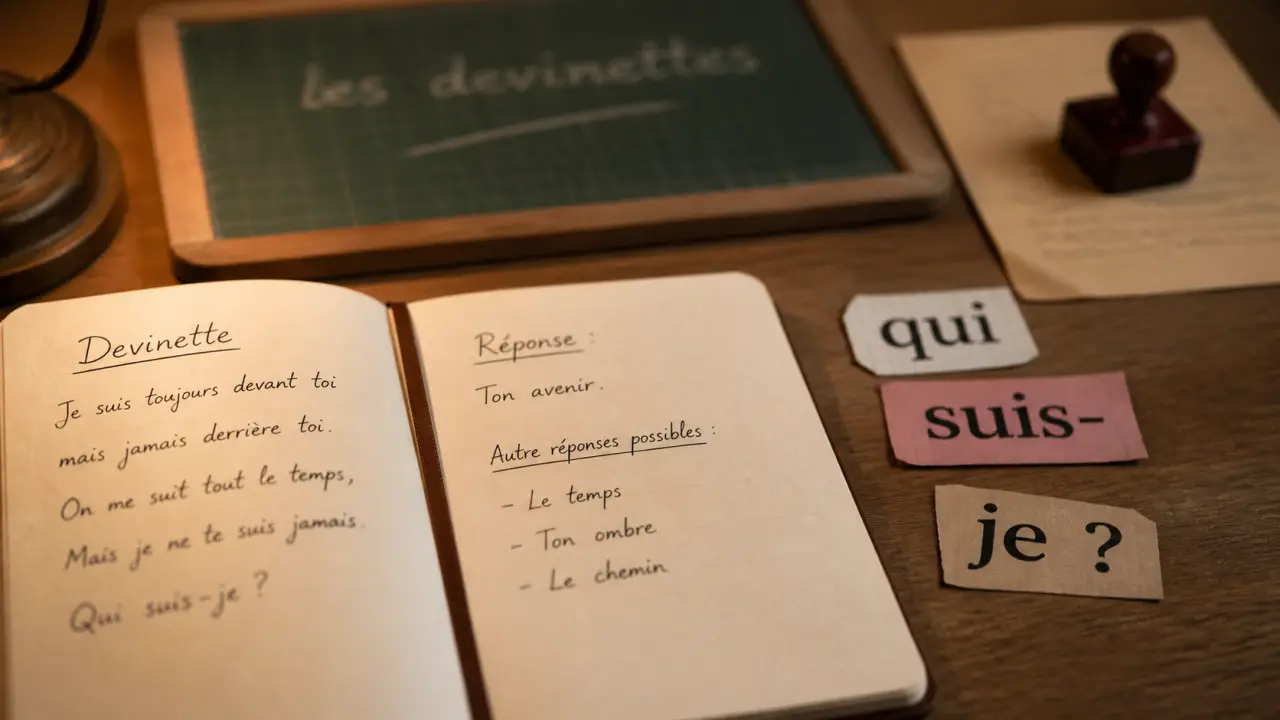 Les devinettes
Devinette
Je suis toujours devant toi
mais jamais derrière toi.
On me suit tout le temps,
Mais je ne te suis jamais.
Qui suis-je ?
Réponse :
Ton avenir.
Autre réponses possibles :
- Le temps
- Ton ombre
- Le chemin
qui
suis-
je ?